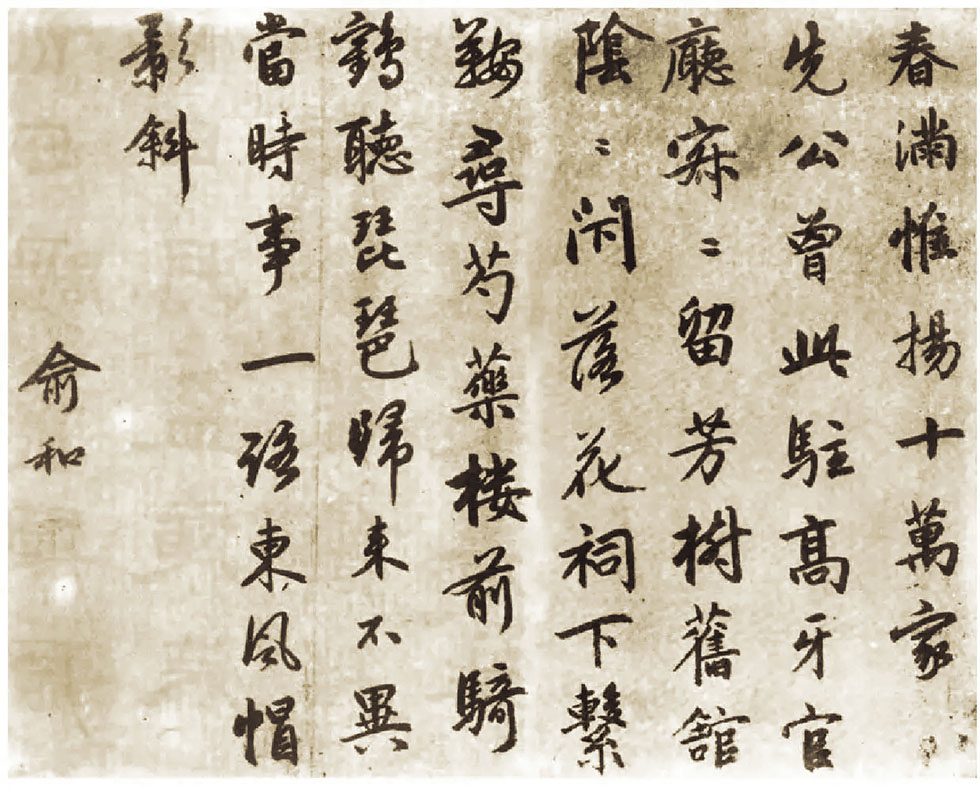 春滿惟揚十萬家
先公曾此駐髙牙官
廳寂〻留芳樹舊舘
陰〻閉落花祠下繫
鞍尋芍藥樓前騎
鶴聽琵琶歸来不異
當時事一路東風帽
影斜
俞和